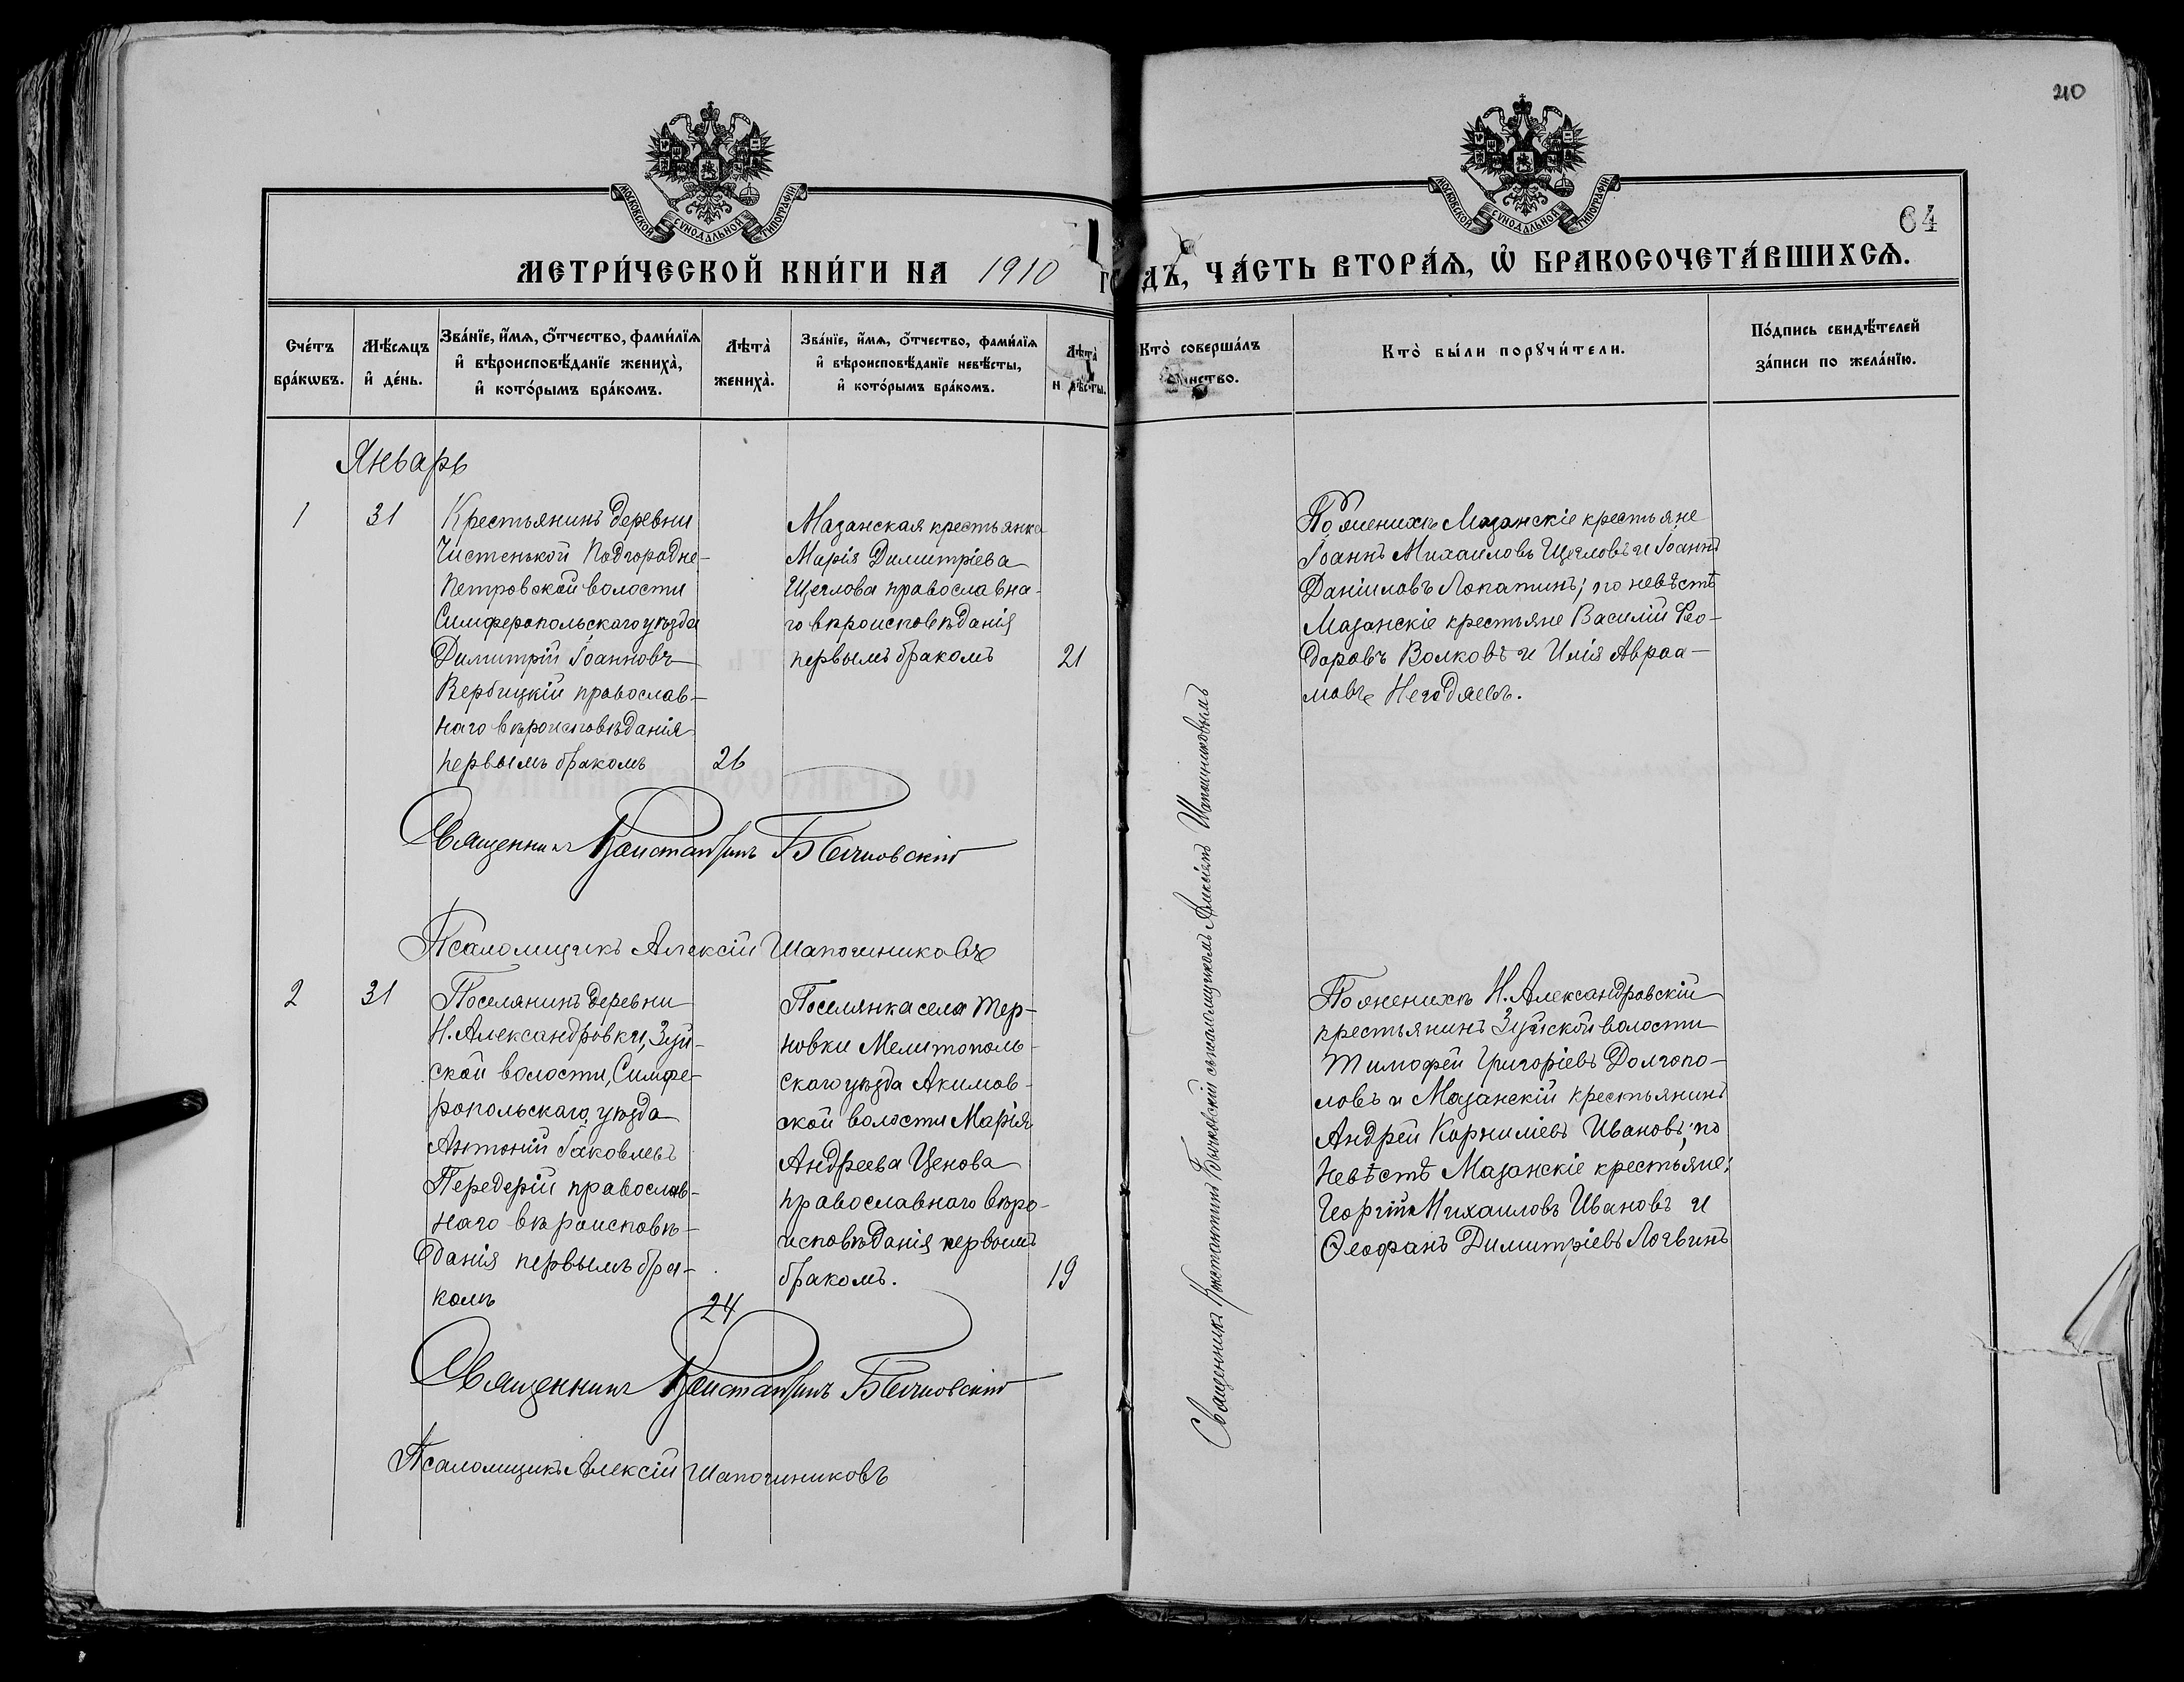 210
МОСКОВСКОЙ СѴНОДАЛЬНОЙ ТИПОГРАФІИ
МОСКОВСКОЙ СѴНОДАЛЬНОЙ ТИПОГРАФІИ
64
МЕТРИ́ЧЕСКОЙ КНИ́ГИ НА 1910 ГОДЪ, ЧА́СТЬ ВТОРА́Ѧ, Ѡ҆ БРАКОСОЧЕТА́ВШИХСѦ.
Сче́тъ
бра́кѡвъ.
Мѣ́сѧцъ
и҆ де́нь.
Зва́нїе, и҆́мѧ, ѻ҆́тчество, фами́лїѧ
и҆ вѣроисповѣ́данїе жениха̀,
и҆ кото́рымъ бра́комъ.
Лѣта̀
жениха̀.
Зва́нїе, и҆́мѧ, ѻ҆́тчество, фами́лїѧ
и҆ вѣроисповѣ́данїе невѣ́сты,
и҆ кото́рымъ бра́комъ.
Лѣта̀
н вѣ́сты.
Кто̀ соверша́лъ
инство.
Кто̀ бы́ли порꙋчи́тели.
По́дпись свидѣ́телей
за́писи по жела́нїю.
Январь
1
31
Крестьянинъ деревни
Чистенькой Подгородне-
Петровской волости
Симферопольскаго уѣзда
Димитрій Іоанновъ
Вербицкій православ-
наго вѣроисповѣданія
первымъ бракомъ
26
Мазанская крестьянка
Марія Димитріева
Щеглова православна-
го вѣроисповѣданія
первымъ бракомъ
21
По женихѣ Мазанскіе крестьяне
Іоаннъ Михаиловъ Щегловъ и Іоаннъ
Даніиловъ Лопатинъ; по невѣстѣ
Мазанскіе крестьяне Василій Ѳео-
доровъ Волковъ и Илія Авраа-
мовъ Негодяевъ.
Священникъ Константинъ Бычковскій
Псаломщикъ Алексій Шапошниковъ
2
31
Поселянинъ деревни
Н. Александровки, Зуй-
ской волости, Симфе-
ропольскаго уѣзда
Антоній Іаковлевъ
Передерій православ-
наго вѣроисповѣ-
данія первымъ бра-
комъ
24
Поселянка села Тер-
новки Мелитополь-
скаго уѣзда Акимов-
ской волости Марія
Андреева Ценова
православнаго вѣро-
исповѣданія первымъ
бракомъ.
19
По женихѣ Н. Александровскій
крестьянинъ Зуйской волости
Тимофей Григоріевъ Долгопо-
ловъ и Мазанскій крестьянинъ
Андрей Корниліевъ Ивановъ; по
невѣстѣ Мазанскіе крестьяне:
Георгій Михаиловъ Ивановъ и
Ѳеофанъ Димитріевъ Логвинъ
Священникъ Константинъ Бычковскій
Псаломщикъ Алексій Шапошниковъ
Священникъ Константинъ Бычковскій съ псаломщикомъ Алексіемъ Шапошниковымъ